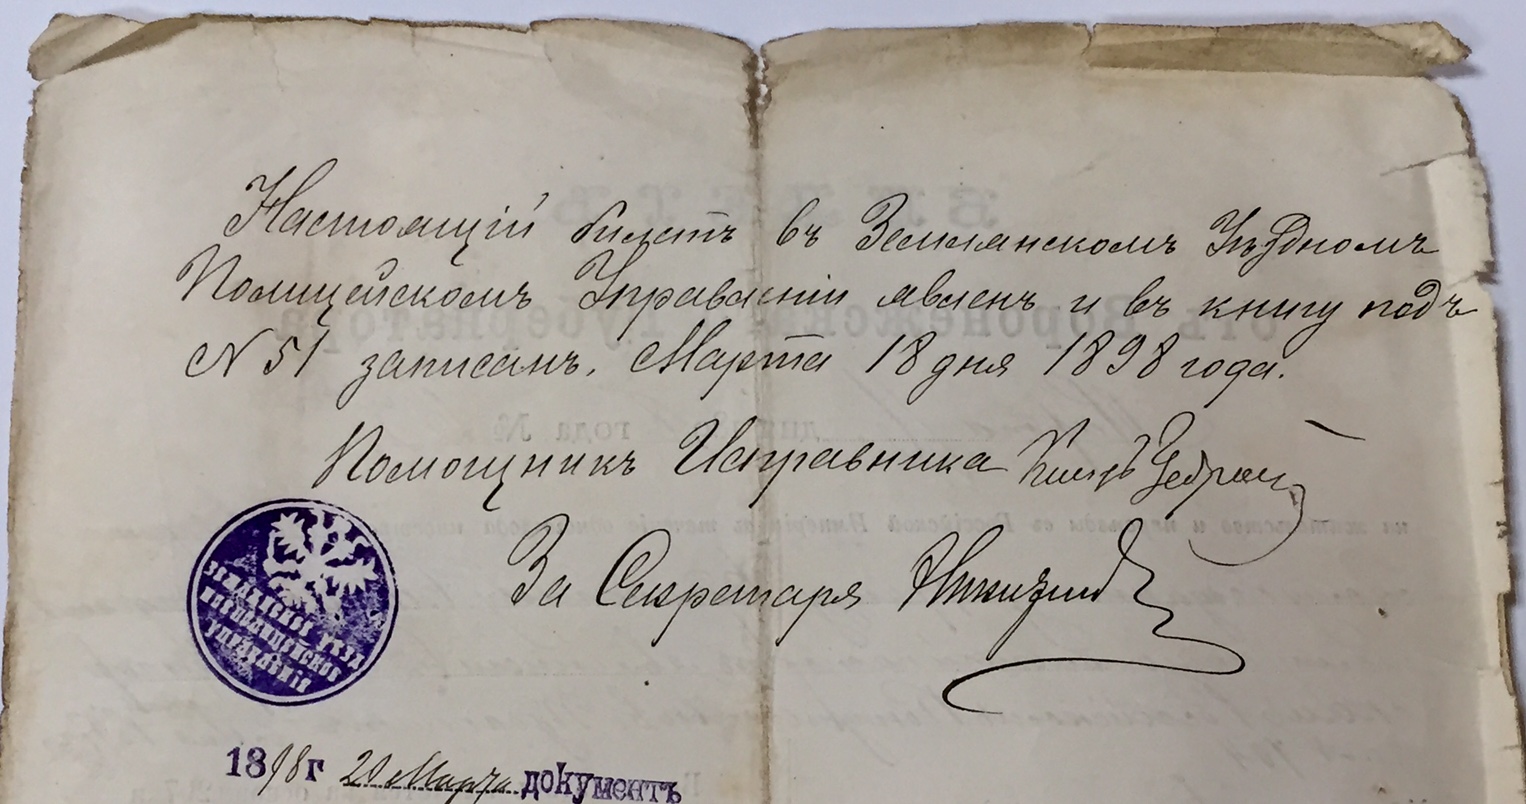 Настоящій билетъ въ Землянскомъ Уѣздномъ
Полицейскомъ Управленіи явленъ и въ книгу подъ
N 51 записанъ. Марта 18 дня 1898 года.
Помощникъ Исправника
За Секретаря
ЗЕМЛЯНСКОЕ УѢЗД
НОЕ ПОЛИЦЕЙСКОЕ
УПРАВЛЕНІЯ
1898 г 20 Марта документъ